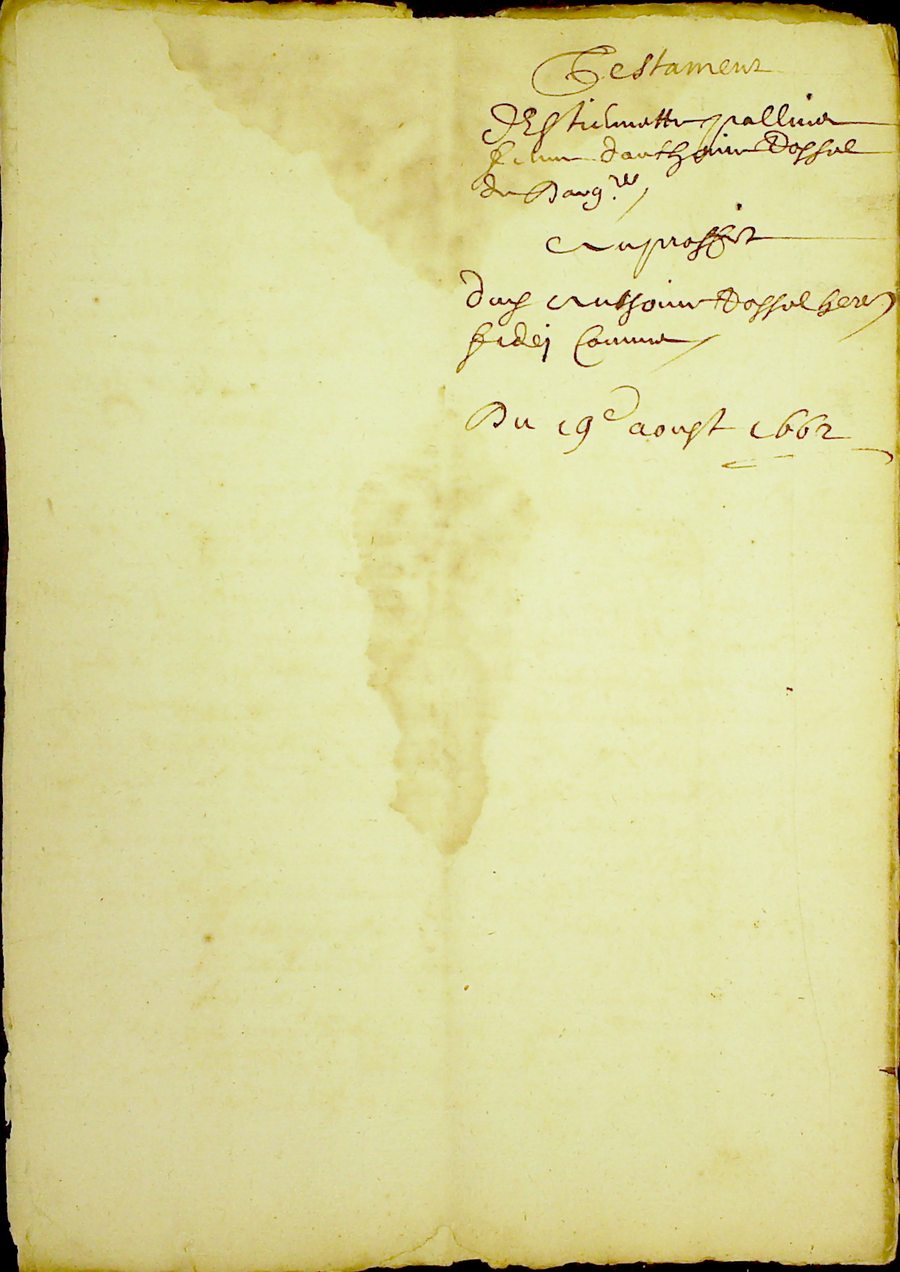 Testament
d'Estienette pallier
femme d'anthoine Dossol
de Barg.res
Au proffit
dud Anthoine Dossol here
fidei Comme
Du 19e aoust 1662